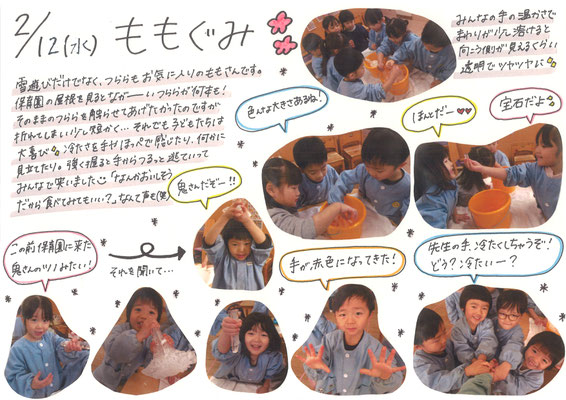 2/12(水) ももぐみ
雪遊びだけでなく、つららもお気に入りのももさんです。
保育園の屋根を見るとなが――いつららが何本も!
そのままのつららを触らせてあげたかったのですが
折れてしまい少し短かく…それでも子どもたちは
大喜び 冷たさを手やほっぺで感じたり、何かに
見立てたり。強く握ると手からつるっと逃げていって
みんなで笑いました 「なんかおいしそう
だから食べてみてもいい?」なんて声も(笑)
みんなの手の温かさで
まわりが少し溶けると
向こう側が見えるくらい
透明でツヤツヤに
色んな大きさあるね!
ほんとだー
宝石だよ
鬼さんだぞー!!
この前保育園に来た
鬼さんのツノみたい!
それを聞いて…
手が赤色になってきた!
先生の手、冷たくしちゃうぞ!
どう?冷たいー?